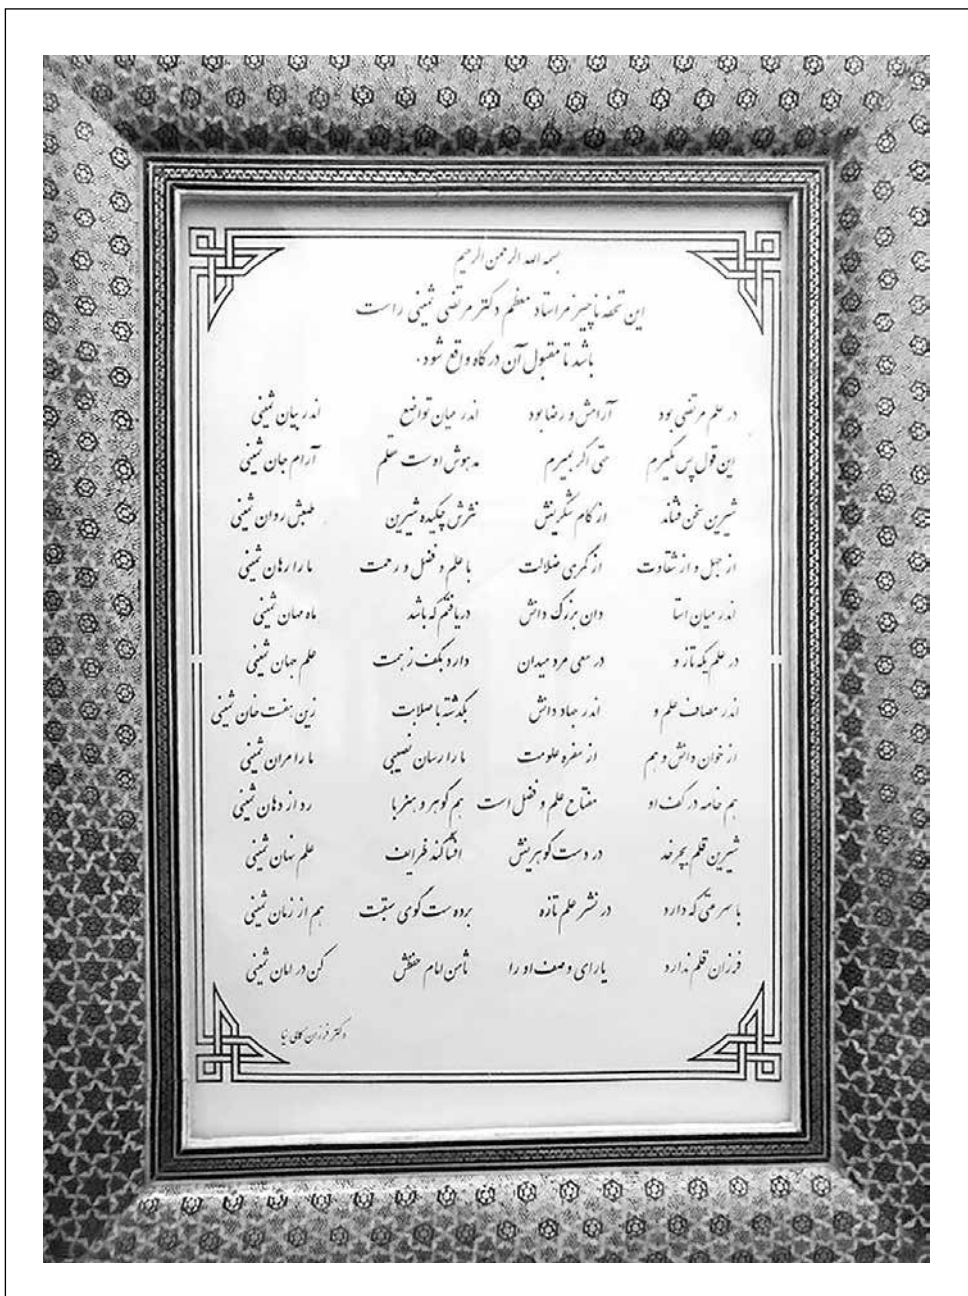 بسمه الله الرحمن الرحیم
این تحفه ناچیز مر استاد معظم دکتر مرتضی ثمینی راست
باشد تا مقبول آن درگاه واقع شود.
در علم مرتضی بود آرامش و رضا بود اندر میان تواضع اندر بیان ثمینی
این قول پس نگیرم حتی اگر بمیرم مدهوش اوست عقلم آرام جان ثمینی
شیرین سخن فشاند از کام شکرینش نثرش چکیده شیرین طبعش روان ثمینی
از جهل و از شقاوت از گمرهی ضلالت با علم و فضل و رحمت ما را رهان ثمینی
اندر میان استا دان بزرگ دانش دریافتم که باشد ماه مهان ثمینی
در علم یکه تاز و در سعی مرد میدان دارد بکف ز همت علم جهان ثمینی
اندر مصاف علم و اندر جهاد دانش بگذشته با صلابت زین هفت خان ثمینی
از خوان دانش و هم از سفره علومت ما را رسان نصیبی ما را مران ثمینی
هم خامه در کف او مفتاح علم و فضل است هم گوهر و هنر با رد از دهان ثمینی
شیرین قلم بچرخد در دست گوهرینش افشا کند ظرایف علم نهان ثمینی
با سرعتی که دارد در نشر علم تازه برده ست گوی سبقت هم از زمان ثمینی
فرزان قلم ندارد یارای وصف او را ثامن امام حفظش کن در امان ثمینی
دکتر فرزان نیا